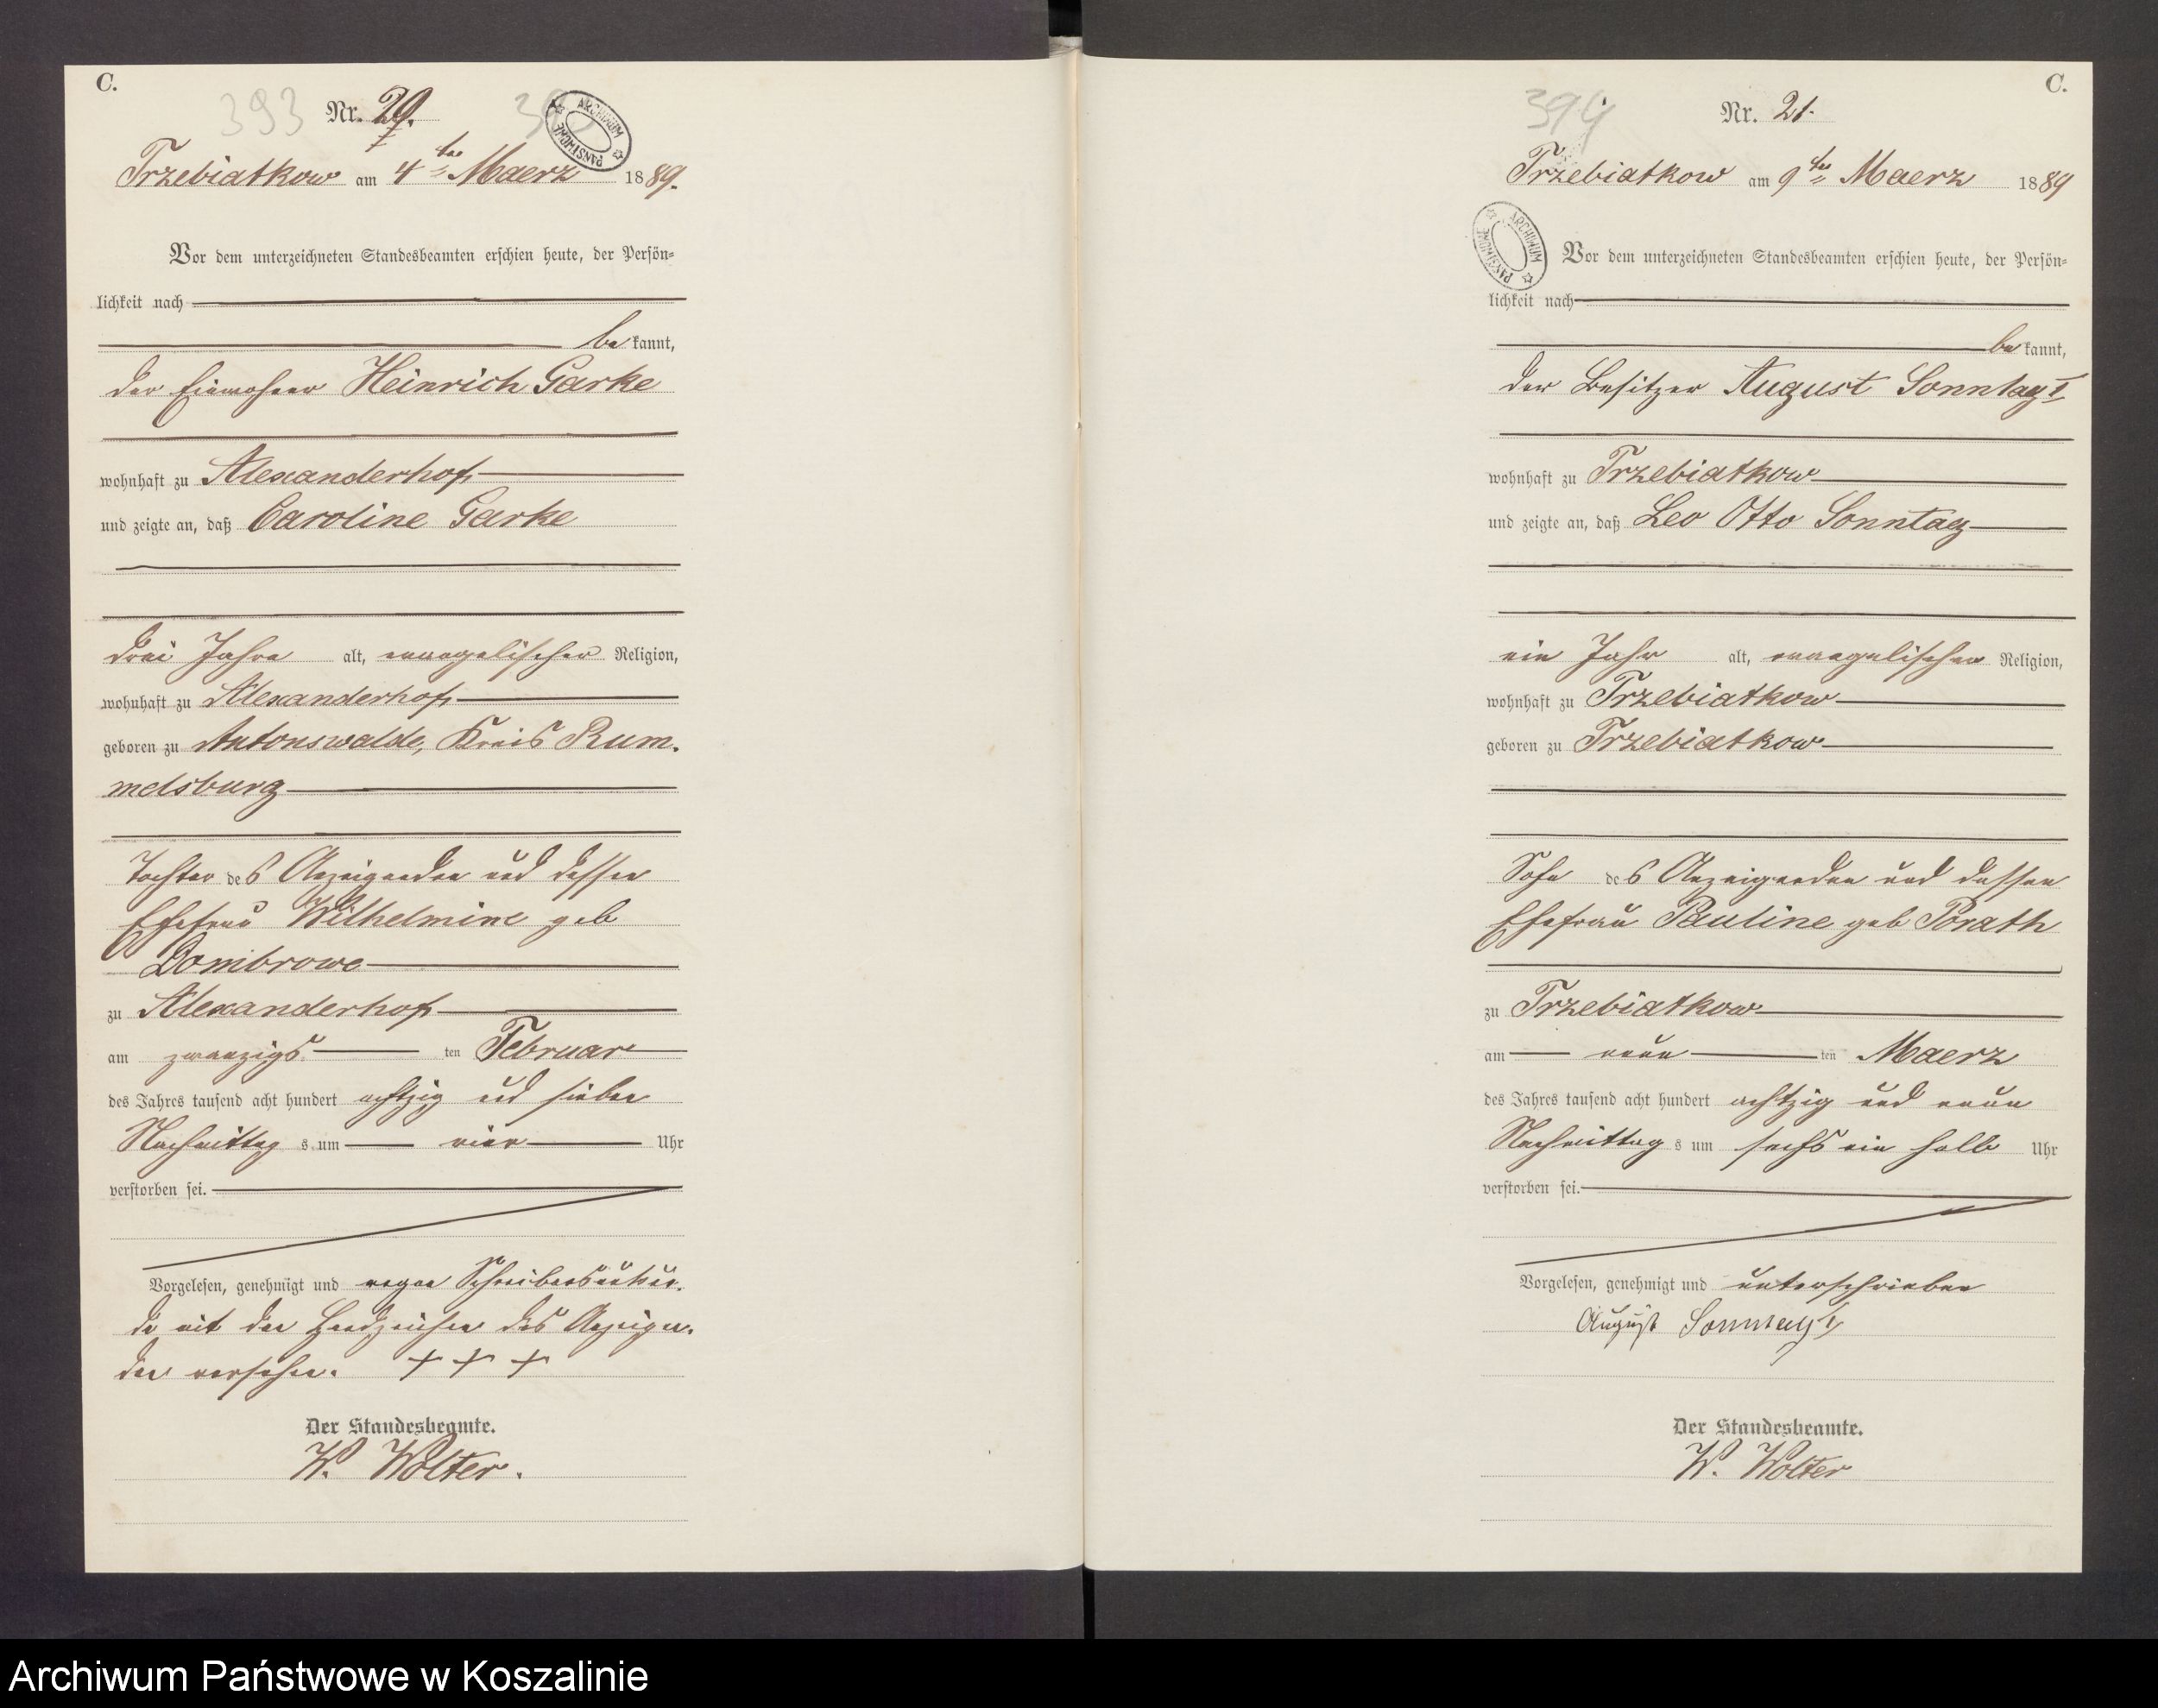 C.
393
Nr. 20.
ARCHIWUM PAŃSTWOWE
Trzebiatkow am 4ten Maerz 1889.
Vor dem unterzeichneten Standesbeamten erschien heute, der Persön-
lichkeit nach
bekannt,
der Einwohner Heinrich Garke
wohnhaft zu Alexanderhof
und zeigte an, daß Caroline Garke
drei Jahre alt, evangelischer Religion,
wohnhaft zu Alexanderhof
geboren zu Antonswalde, Kreis Rum-
melsburg
Tochter des Anzeigenden und dessen
Ehefrau Wilhelmine geb
Dombrowe
zu Alexanderhof
am zwanzigsten Februar
des Jahres tausend acht hundert achtzig und sieben
Nachmittags um vier Uhr
verstorben sei.
Vorgelesen, genehmigt und wegen Schreibensunkun-
de mit den Handzeichen des Anzeigen-
den versehen. + + +
Der Standesbeamte.
W. Wolter.
C.
394
Nr. 21.
Trzebiatkow am 9ten Maerz 1889
ARCHIWUM PAŃSTWOWE
Vor dem unterzeichneten Standesbeamten erschien heute, der Persön-
lichkeit nach
bekannt,
der Besitzer August Sonntag I
wohnhaft zu Trzebiatkow
und zeigte an, daß Leo Otto Sonntag
ein Jahr alt, evangelischer Religion,
wohnhaft zu Trzebiatkow
geboren zu Trzebiatkow
Sohn des Anzeigenden und dessen
Ehefrau Pauline geb Porath
zu Trzebiatkow
am neunten Maerz
des Jahres tausend acht hundert achtzig und neun
Nachmittags um sechs ein halb Uhr
verstorben sei.
Vorgelesen, genehmigt und unterschrieben
August Sonntag I
Der Standesbeamte.
W. Wolter
Archiwum Państwowe w Koszalinie